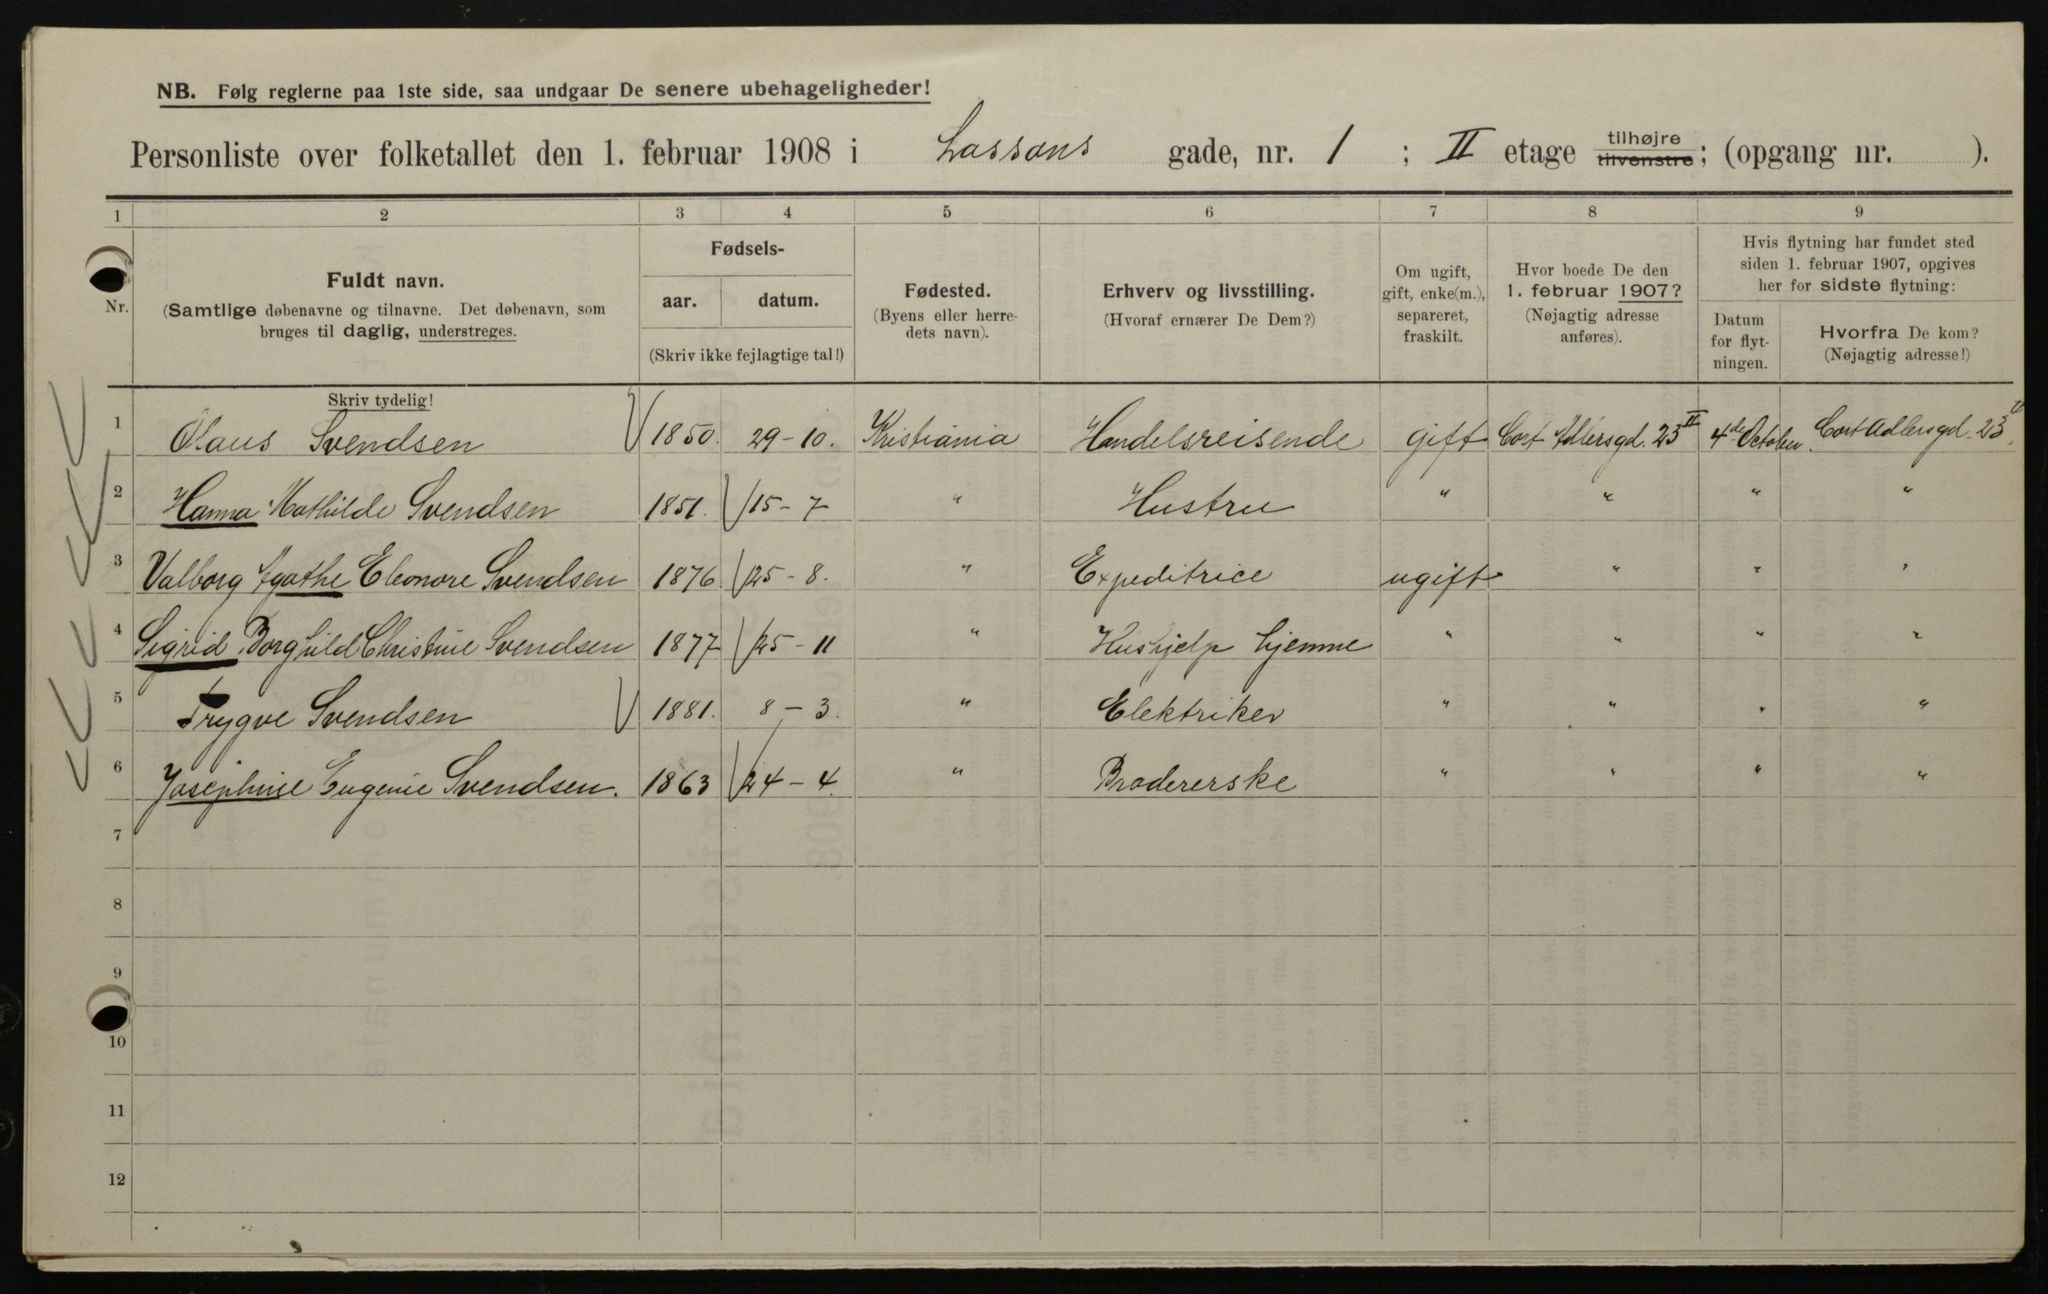 NB. Følg reglerne paa 1ste side, saa undgaar De senere ubehageligheder!
Personliste over folketallet den 1. februar 1908 i Lassons gade, nr. 1 ; II etage tilhøjre tilvenstre; (opgang nr. ).
1 2 3 4 5 6 7 8 9
Nr.
Fuldt navn.
(Samtlige døbenavne og tilnavne. Det døbenavn, som
bruges til daglig, understreges.
Fødsels-
aar. datum.
(Skriv ikke fejlagtige tal!)
Fødested.
(Byens eller herre-
dets navn).
Erhverv og livsstilling.
(Hvoraf ernærer De Dem?)
Om ugift,
gift, enke(m.),
separeret,
fraskilt.
Hvor boede De den
1. februar 1907?
(Nøjagtig adresse
anføres).
Hvis flytning har fundet sted
siden 1. februar 1907, opgives
her for sidste flytning:
Datum
for flyt-
ningen.
Hvorfra De kom?
(Nøjagtig adresse!)
Skriv tydelig!
1 Olaus Svendsen 1850. 29-10. Kristiania Handelsreisende gift Cort Adlersgd. 23 II 4de October. Cort Adlersgd. 23 II
2 Hanna Mathilde Svendsen 1851. 15-7 " Hustru " " " "
3 Valborg Agathe Eleonore Svendsen 1876 25-8. " Expeditrice ugift " " "
4 Sigrid Borghild Christine Svendsen 1877 25-11 " Hushjelp hjemme " " " "
5 Trygve Svendsen 1881. 8-3. " Elektriker " " " "
6 Josephine Eugenie Svendsen. 1863 24-4. " Brodererske " " " "
7
8
9
10
11
12